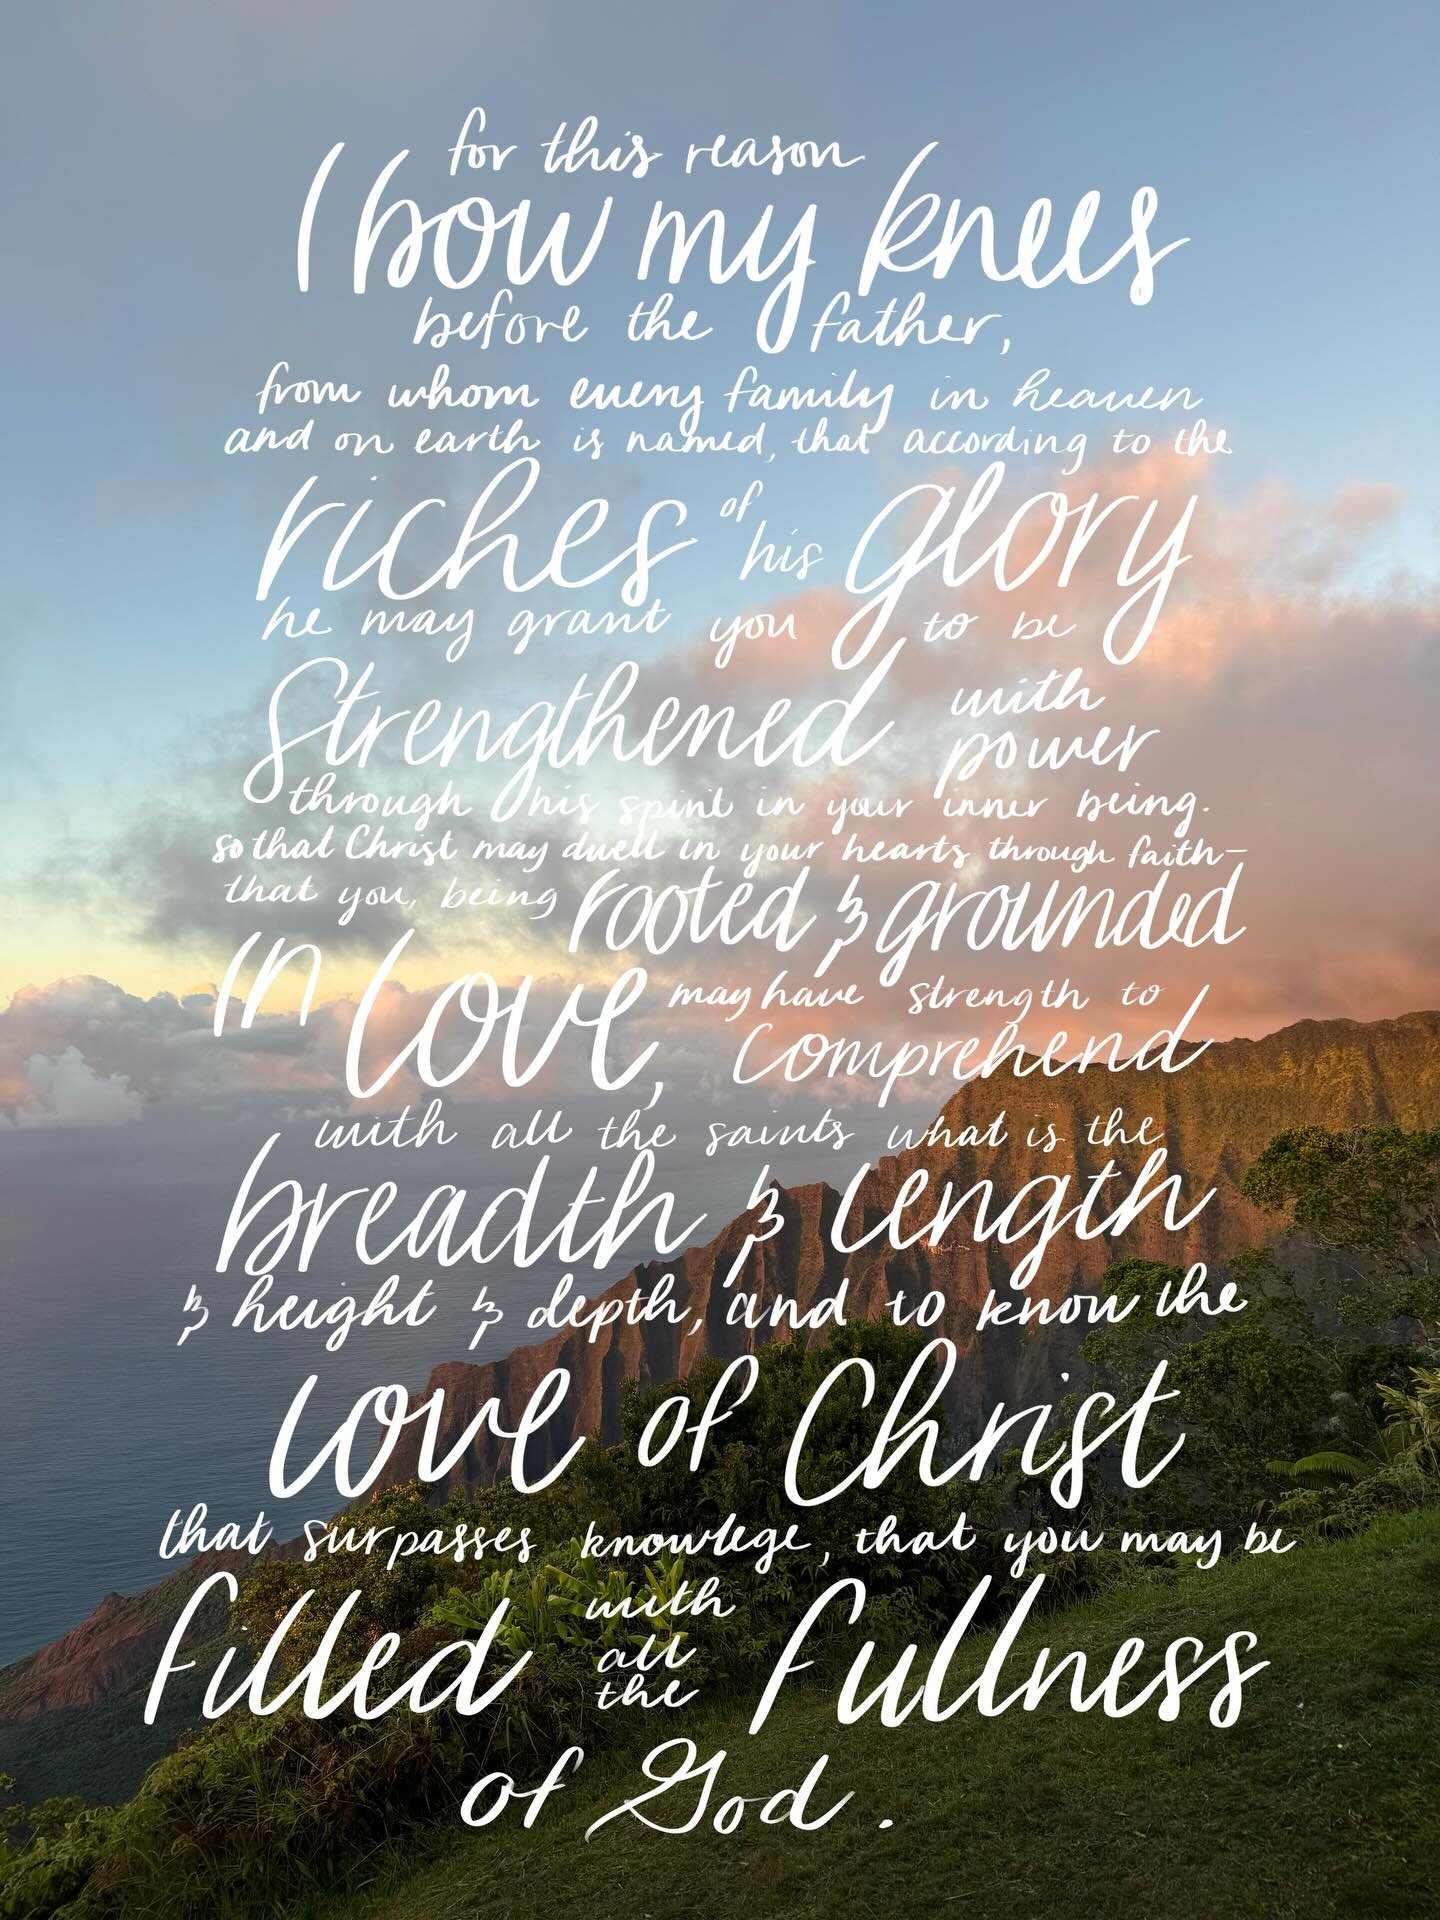 for this reason
I bow my knees
before the father,
from whom every family in heaven
and on earth is named, that according to the
riches of his glory
he may grant you to be
Strengthened with power
through his spirit in your inner being.
so that Christ may dwell in your hearts through faith—
that you, being rooted & grounded
in love, may have strength to
comprehend
with all the saints what is the
breadth & length
& height & depth, and to know the
love of Christ
that surpasses knowlege, that you may be
filled with all the fullness
of God.